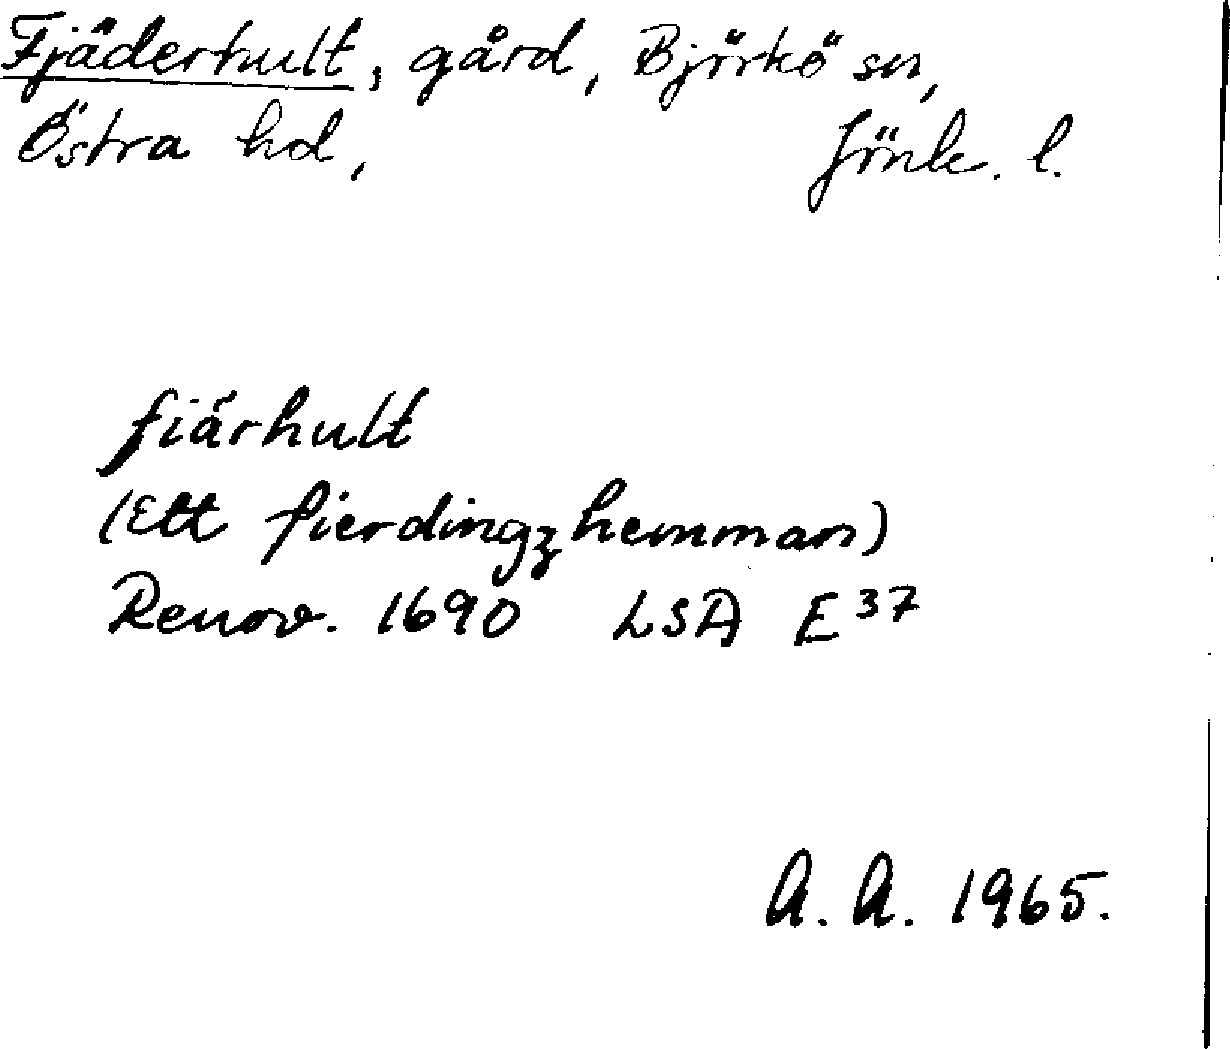 Fjäderhult, gård, Björkö sn,
Östra hd, Jönk. l.
fiärhult
(Ett fierdingzhemman)
Renov. 1690 LSA E 37
A. A. 1965.